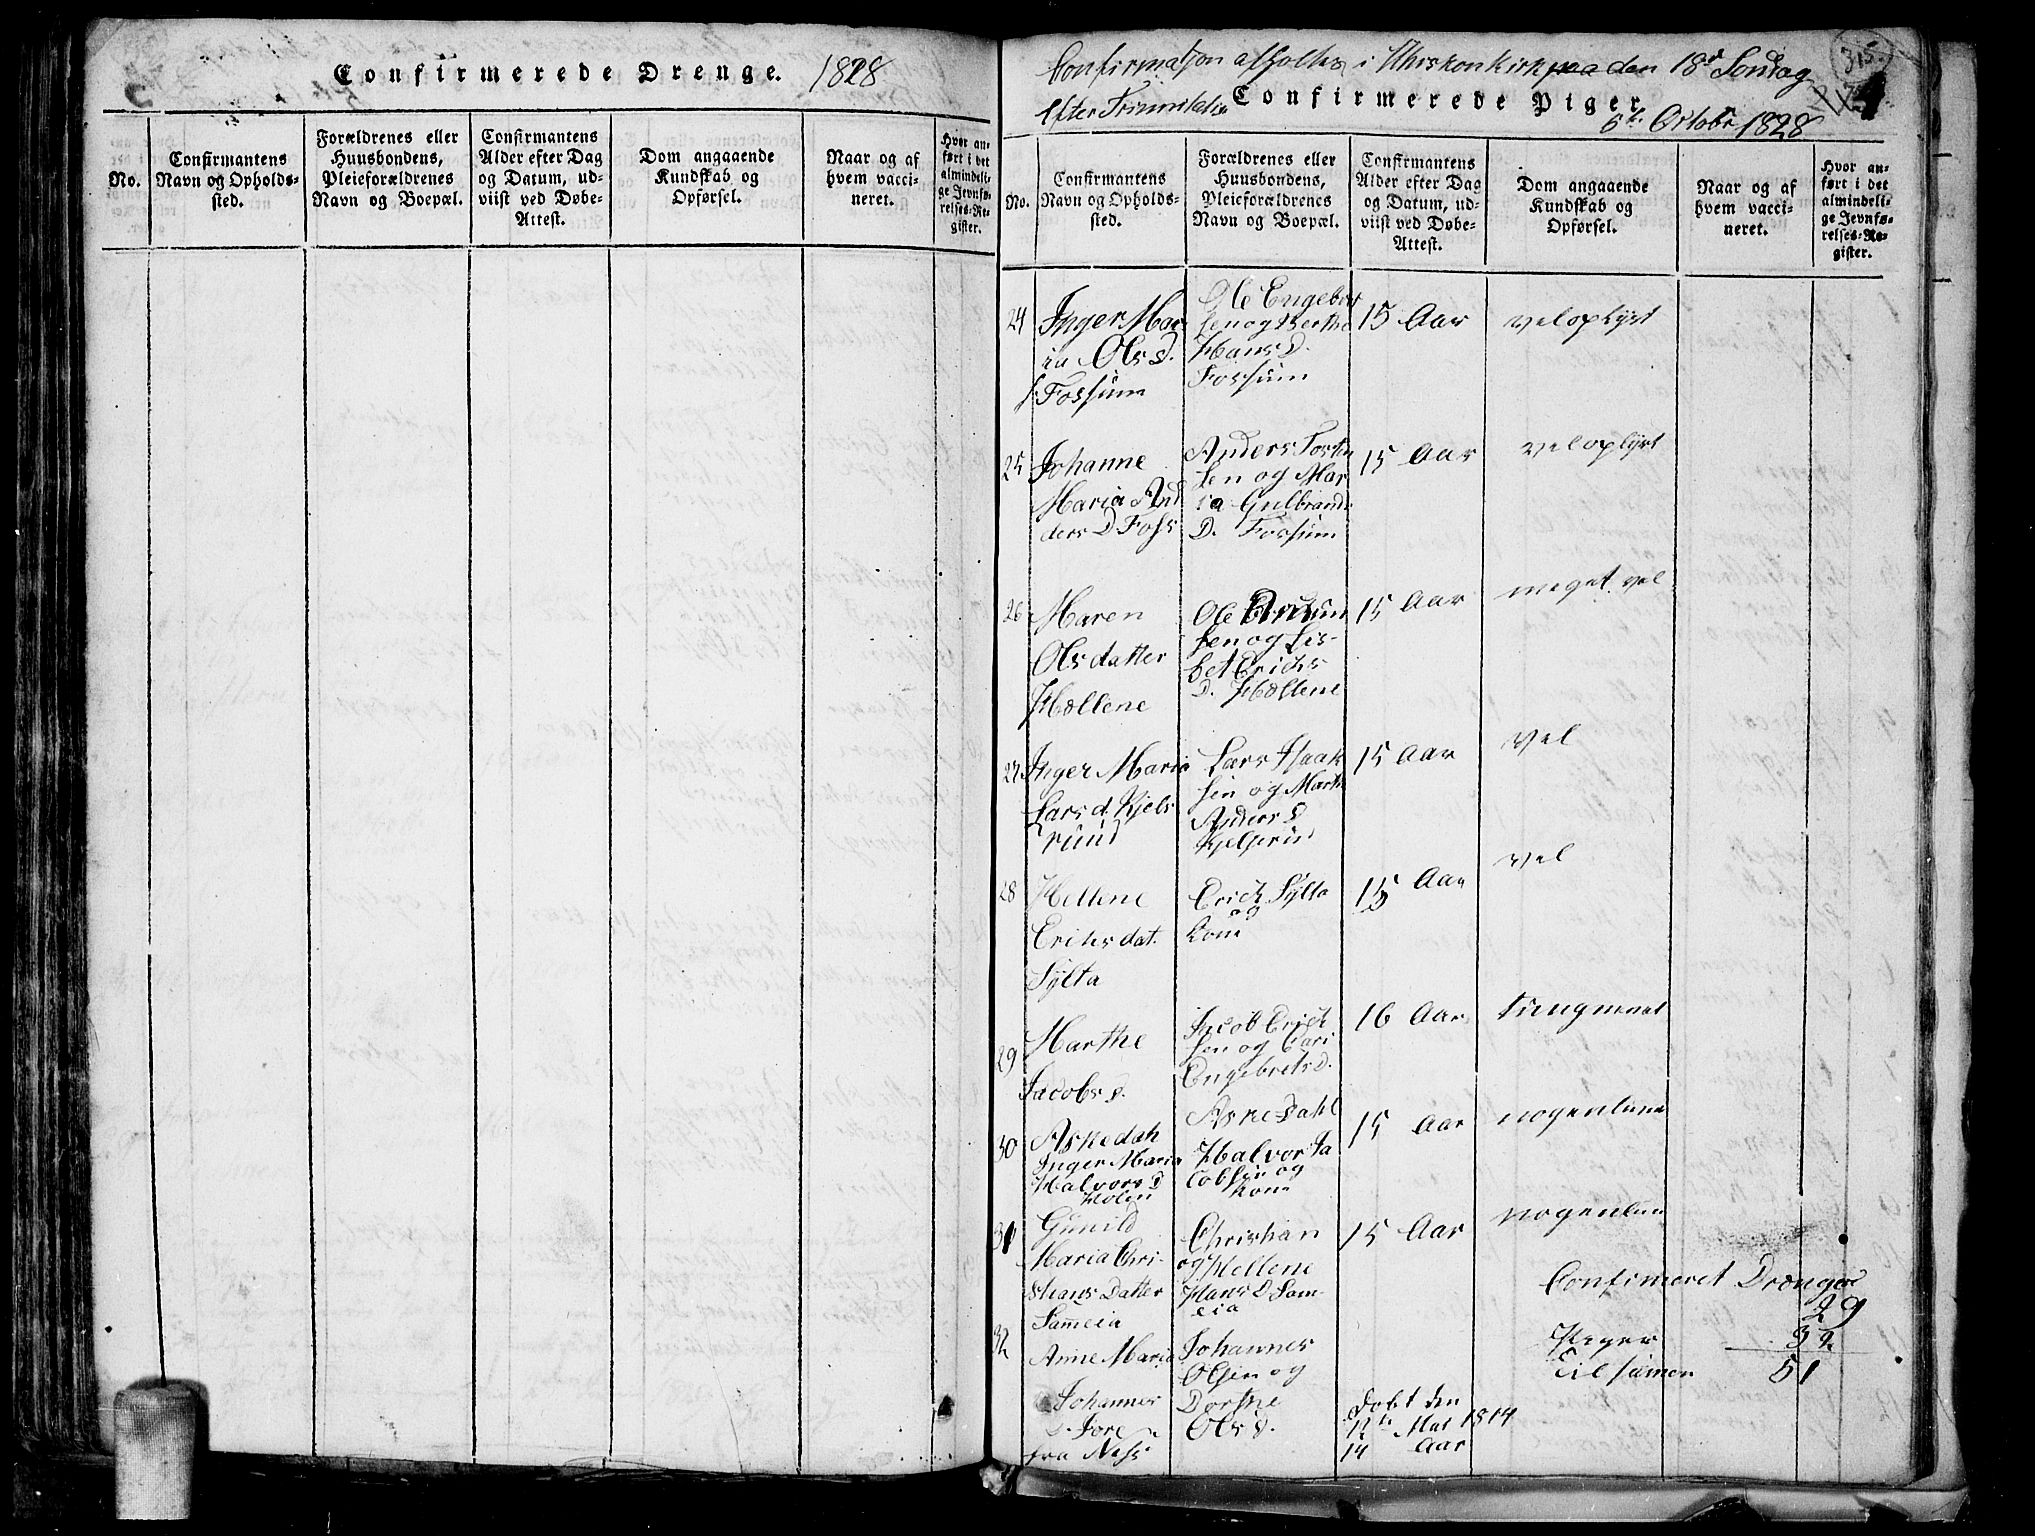 Confirmerede Drenge. 1828
No.
Confirmantens
Navn og Opholds-
sted.
Forældrenes eller
Huusbondens,
Pleieforældrenes
Navn og Boepæl.
Confirmantens
Alder efter Dag
og Datum, ud-
viist ved Døbe-
Attest.
Dom angaaende
Kundskab og
Opførsel.
Naar og af
hvem vacci-
neret.
Hvor an-
ført i det
almindeli-
ge Jevnfø-
relses-Re-
gister.
Confirmatjon afholtes i kirk paa den 18d Søndag
efter Trinnitatis
315.
Confirmerede Piger
5te Octobr 1828
No.
Confirmantens
Navn og Opholds-
sted.
Forældrenes eller
Huusbondens,
Pleieforældrenes
Navn og Boepæl.
Confirmantens
Alder efter Dag
og Datum, ud-
viist ved Døbe-
Attest.
Dom angaaende
Kundskab og
Opførsel.
Naar og af
hvem vacci-
neret.
Hvor an-
ført i det
almindeli-
ge Jevnfø-
relses-Re-
gister.
24
Inger Mar
ia Ols D.
Fossum
Ole Engebret
sen og Berthe
Hans D.
Fossum
15 Aar
veloplyst
25
Johanne
Maria And
ders D Foss
Anders Torsten
sen og Mar
ia Gulbrands
D. Fossum
15 Aar
veloplyst
26
Maren
Olsdatter
Hællene
Ole
sen og Lis-
bet Erichs
D. Hællene
15 Aar
meget vel
27
Inger Maria
Lars d. Kjels
rund
Lars Isaak
sen og Marte
Anders D
15 Aar
vel
28
Hellene
Eriksdat.
Sylta
Erich Sylta
og
Kone
15 Aar
vel
29
Marthe
Jacobs D.
Jacob Erich
sen og Cari
Engebrets D.
16 Aar
tungnemet
30
Askedah
Inger Maria
Halvors D
Holen
Askedahl
Halvor Ja
cobsen og
Kone
15 Aar
nogenlune
31
Gunild
Maria Chri-
stians Datter
Sameia
Christian
og Hellene
Hans D Sam-
eia
15 Aar
nogenlun
32
Anne Maria
Johannes
D. Tore
fra Ness
Johannes
Olsen og
Dorthe
Ols D.
Døbt den
12te Mai 1814
14 Aar
Confimeret Drænger
29
Piger 32
Til samen 51